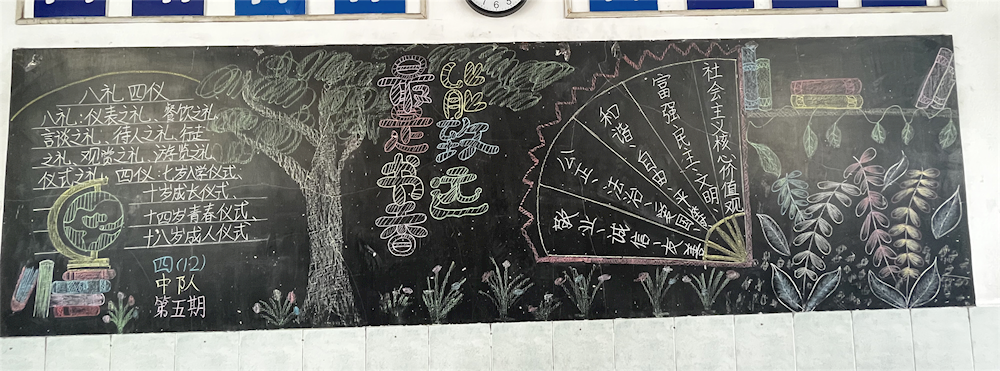 八礼四仪
八礼:仪表之礼、餐饮之礼、
言谈之礼、待人之礼、行走
之礼、观赏之礼、游览之礼
仪式之礼。四仪:七岁入学仪式、
十岁成长仪式、
十四岁青春仪式、
十八岁成人仪式
四(12)
中队
第五期
最是书香
能致远
社会主义核心价值观
富强民主、文明
和谐、自由、平等
公正、法治、爱国
敬业、诚信、友善